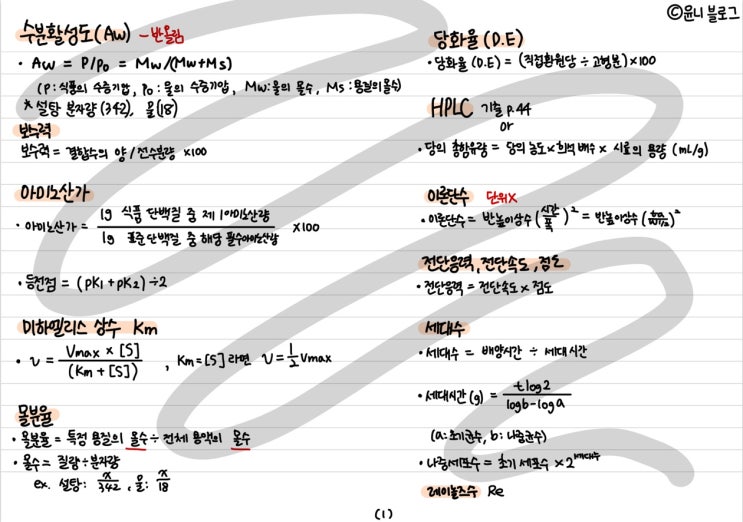 ©윤니 블로그
수분활성도(Aw) - 반올림
• Aw = P/P₀ = Mw/(Mw+Ms)
(P: 식품의 수증기압, P₀: 물의 수증기압, Mw: 물의 몰수, Ms: 용질의 몰수)
* 설탕 분자량(342), 물(18)
보수력
보수력 = 결합수의 양 / 전수분량 ×100
아미노산가
• 아미노산가 = 1g 식품 단백질 중 제1아미노산량 / 1g 표준단백질 중 해당 필수아미노산량 ×100
• 등전점 = (pK₁+pK₂)÷2
미하엘리스 상수 Km
• v = Vmax × [S] / (Km + [S]) , Km = [S] 라면 v = 1/2 Vmax
몰분율
• 몰분율 = 특정 용질의 몰수 ÷ 전체 용액의 몰수
• 몰수 = 질량÷분자량
ex. 설탕: x/342, 물: x/18
당화율 (D.E)
• 당화율(D.E) = (직접환원당 ÷ 고형분)×100
HPLC 기출 p.44
or
• 당의 총함유량 = 당의 농도×희석배수× 시료의 용량 (mL/g)
이론단수 단위X
• 이론단수 = 반높이상수 (시간/폭)² = 반높이상수 ( )²
전단응력, 전단속도, 점도
• 전단응력 = 전단속도 × 점도
세대수
• 세대수 = 배양시간 ÷ 세대시간
• 세대시간(g) = tlog2 / logb-loga
(a: 초기균수, b: 나중균수)
• 나중세포수 = 초기 세포수 ×2^세대수
레이놀즈수 Re
(1)